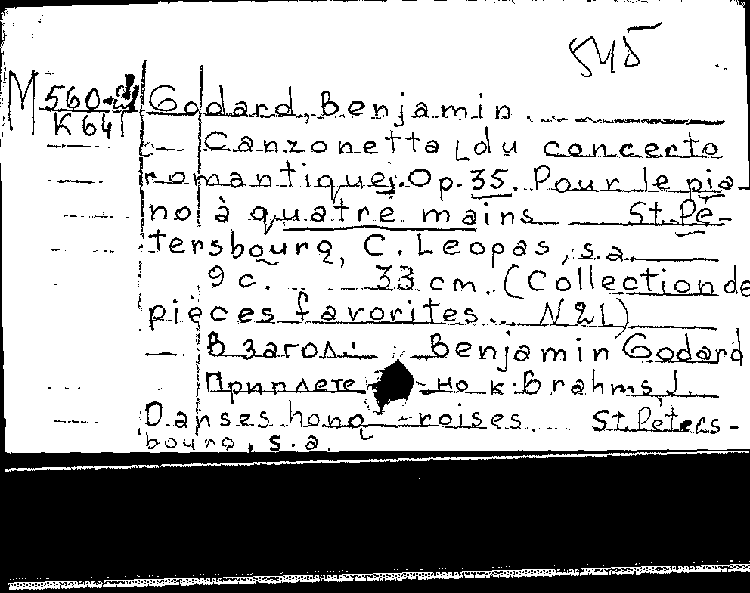 545
M 560-4 Godard, Benjamin
K 641
Canzonetta [du concerto
romantique]. Op. 35. Pour le pia-
no à quatre mains St. Pé-
tersbourg, C. Leopas, s.a.
9 c. 33 cm. (Collection de
pièces favorites. N 21)
В загол.: Benjamin Godard
Приплетено к: Brahms, J.
Danses hongroises. St. Peters-
bourg, s.a.